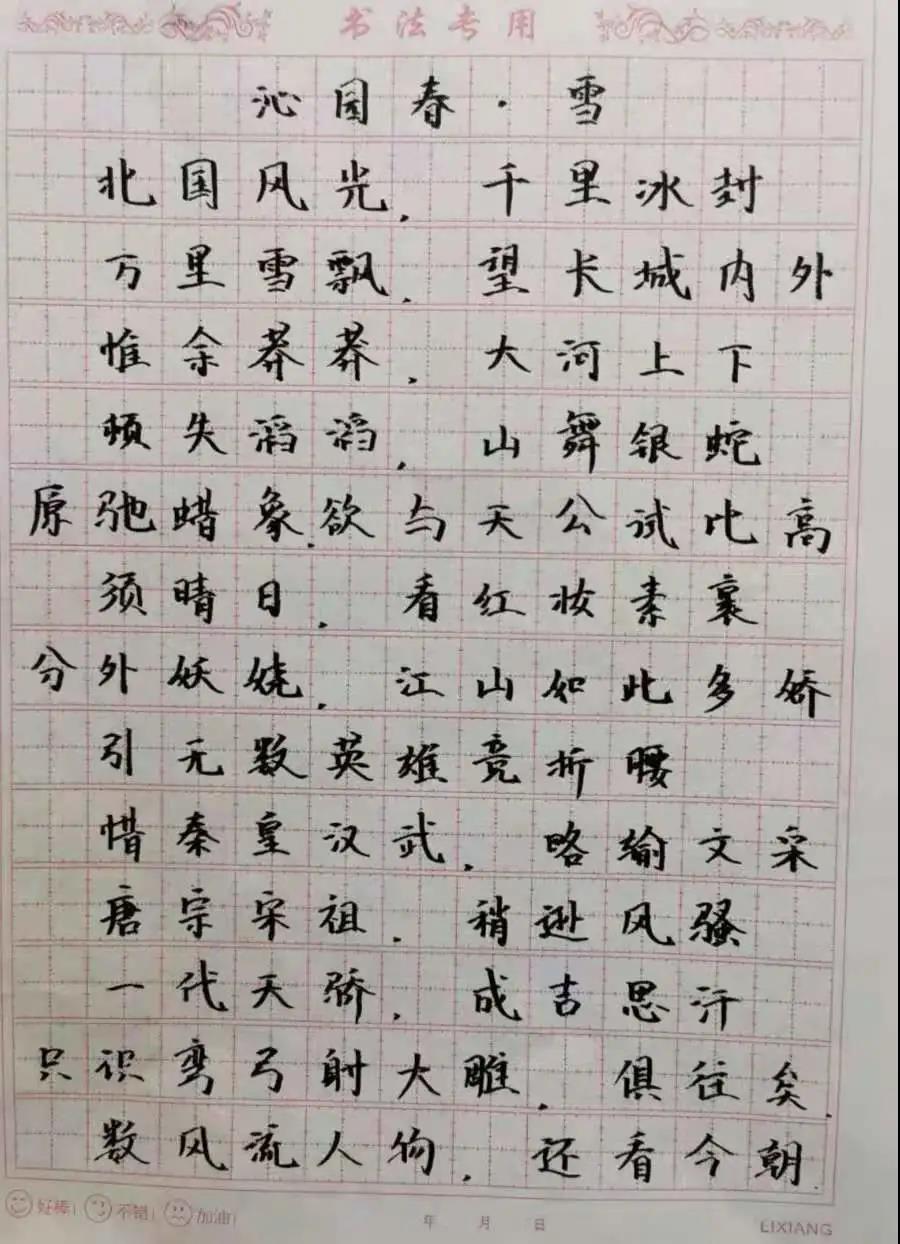 书法专用
沁园春·雪
北国风光，千里冰封
万里雪飘，望长城内外
惟余莽莽，大河上下
顿失滔滔，山舞银蛇
原驰蜡象，欲与天公试比高
须晴日，看红妆素裹
分外妖娆，江山如此多娇
引无数英雄竞折腰
惜秦皇汉武，略输文采
唐宗宋祖，稍逊风骚
一代天骄，成吉思汗
只识弯弓射大雕，俱往矣，
数风流人物，还看今朝.
好棒! 不错! 加油! 年 月 日 LIXIANG